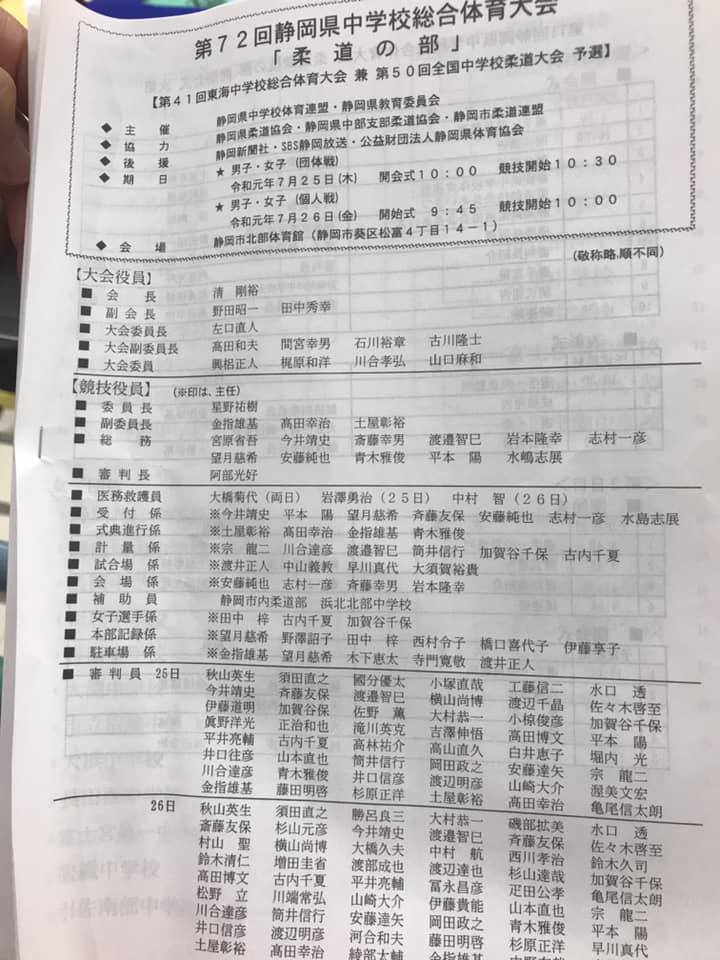 第72回静岡県中学校総合体育大会
「柔道の部」
【第41回東海中学校総合体育大会 兼 第50回全国中学校柔道大会 予選】
◆ 主 催 静岡県中学校体育連盟・静岡県教育委員会
◆ 協 力 静岡県柔道協会・静岡県中部支部柔道協会・静岡市柔道連盟
◆ 後 援 静岡新聞社・SBS静岡放送・公益財団法人静岡県体育協会
◆ 期 日 ★ 男子・女子 (団体戦)
令和元年7月25日(木) 開会式10:00 競技開始10:30
★ 男子・女子 (個人戦)
令和元年7月26日(金) 開始式 9:45 競技開始10:00
◆ 会 場 静岡市北部体育館(静岡市葵区松富4丁目14-1)
(敬称略,順不同)
【大会役員】
■ 会 長 清 剛裕
■ 副会長 野田昭一 田中秀幸
■ 大会委員長 左口直人
■ 大会副委員長 髙田和夫 間宮幸男 石川裕章 古川隆士
■ 大会委員 興梠正人 梶原和洋 川合孝弘 山口麻和
【競技役員】 (※印は、主任)
■ 委員長 星野祐樹
■ 副委員長 金指雄基 髙田幸治 土屋彰裕
■ 総 務 宮原省吾 今井靖史 斎藤幸男 渡邉智巳 岩本隆幸 志村一彦
望月慈希 安藤純也 青木雅俊 平本 陽 水嶋志展
■ 審判長 阿部光好
■ 医務救護員 大橋菊代(両日) 岩澤勇治(25日) 中村 智(26日)
■ 受 付 係 ※今井靖史 平本 陽 望月慈希 斉藤友保 安藤純也 志村一彦 水島志展
■ 式典進行係 ※土屋彰裕 髙田幸治 金指雄基 青木雅俊
■ 計 量 係 ※宗 龍二 川合達彦 渡邉智巳 筒井信行 加賀谷千保 古内千夏
■ 試合場 係 ※渡井正人 中山義教 早川真代 大須賀裕貴
■ 会 場 係 ※安藤純也 志村一彦 斉藤幸男 岩本隆幸
■ 補 助 員 静岡市内柔道部 浜北北部中学校
■ 女子選手係 ※田中 梓 古内千夏 加賀谷千保
■ 本部記録係 ※望月慈希 野澤詔子 田中 梓 西村令子 橋口喜代子 伊藤享子
■ 駐車場 係 ※金指雄基 望月慈希 木下恵太 寺門寛敬 渡井正人
■ 審判員 25日 秋山英生 須田直之 國分優太 小塚直哉 工藤信二 水口 透
今井靖史 斉藤友保 渡邉智巳 横山尚博 渡辺千晶 佐々木啓至
伊藤道明 加賀谷保 佐野 薫 大村恭一 小椋俊彦 加賀谷千保
眞野洋光 正治和也 滝川英克 吉澤伸悟 髙田博文 平本 陽
平井亮輔 古内千夏 高林祐介 高山直久 白井恵子 堀内 光
井口往彦 山本直也 筒井信行 岡田政之 安藤達矢 宗 龍二
川合達彦 青木雅俊 井口信彦 渡辺明彦 山崎大介 渥美文宏
金指雄基 藤田明啓 杉原正洋 土屋彰裕 髙田幸治 亀尾信太朗
26日 秋山英生 須田直之 勝呂良三 大村恭一 磯部拡美 水口 透
斎藤友保 杉山元彦 今井靖史 渡邉智巳 青木雅俊 佐々木啓至
村山 聖 横山尚博 大橋久夫 中村 航 西川孝治 鈴木久司
鈴木清仁 増田圭省 渡部成也 渡辺達也 杉山達哉 加賀谷千保
髙田博文 古内千夏 平井亮輔 冨永昌彦 疋田公孝 亀尾信太朗
松野 立 川端常弘 山崎大介 伊藤貴能 山本直也 宗 龍二
川合達彦 筒井信行 安藤達矢 岡田政之 青木雅俊 平本 陽
井口信彦 渡辺明彦 河合和夫 藤田明啓 杉原正洋 早川真代
土屋彰裕 髙田幸治 綾部雄太 金指雄基